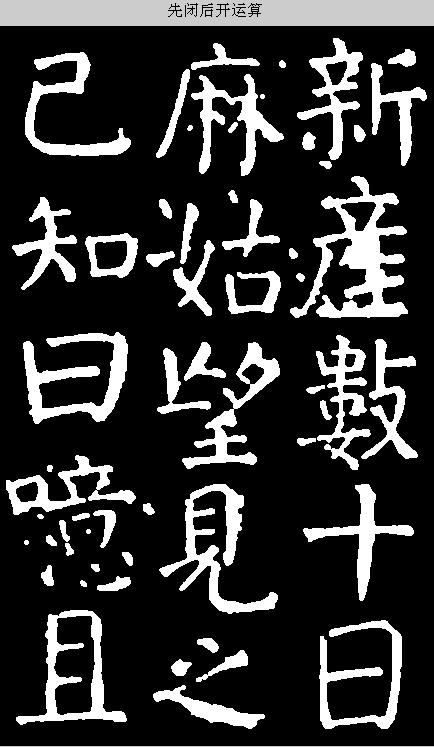 先闭后开运算
新產數十日
麻姑望見之
已知曰噫且